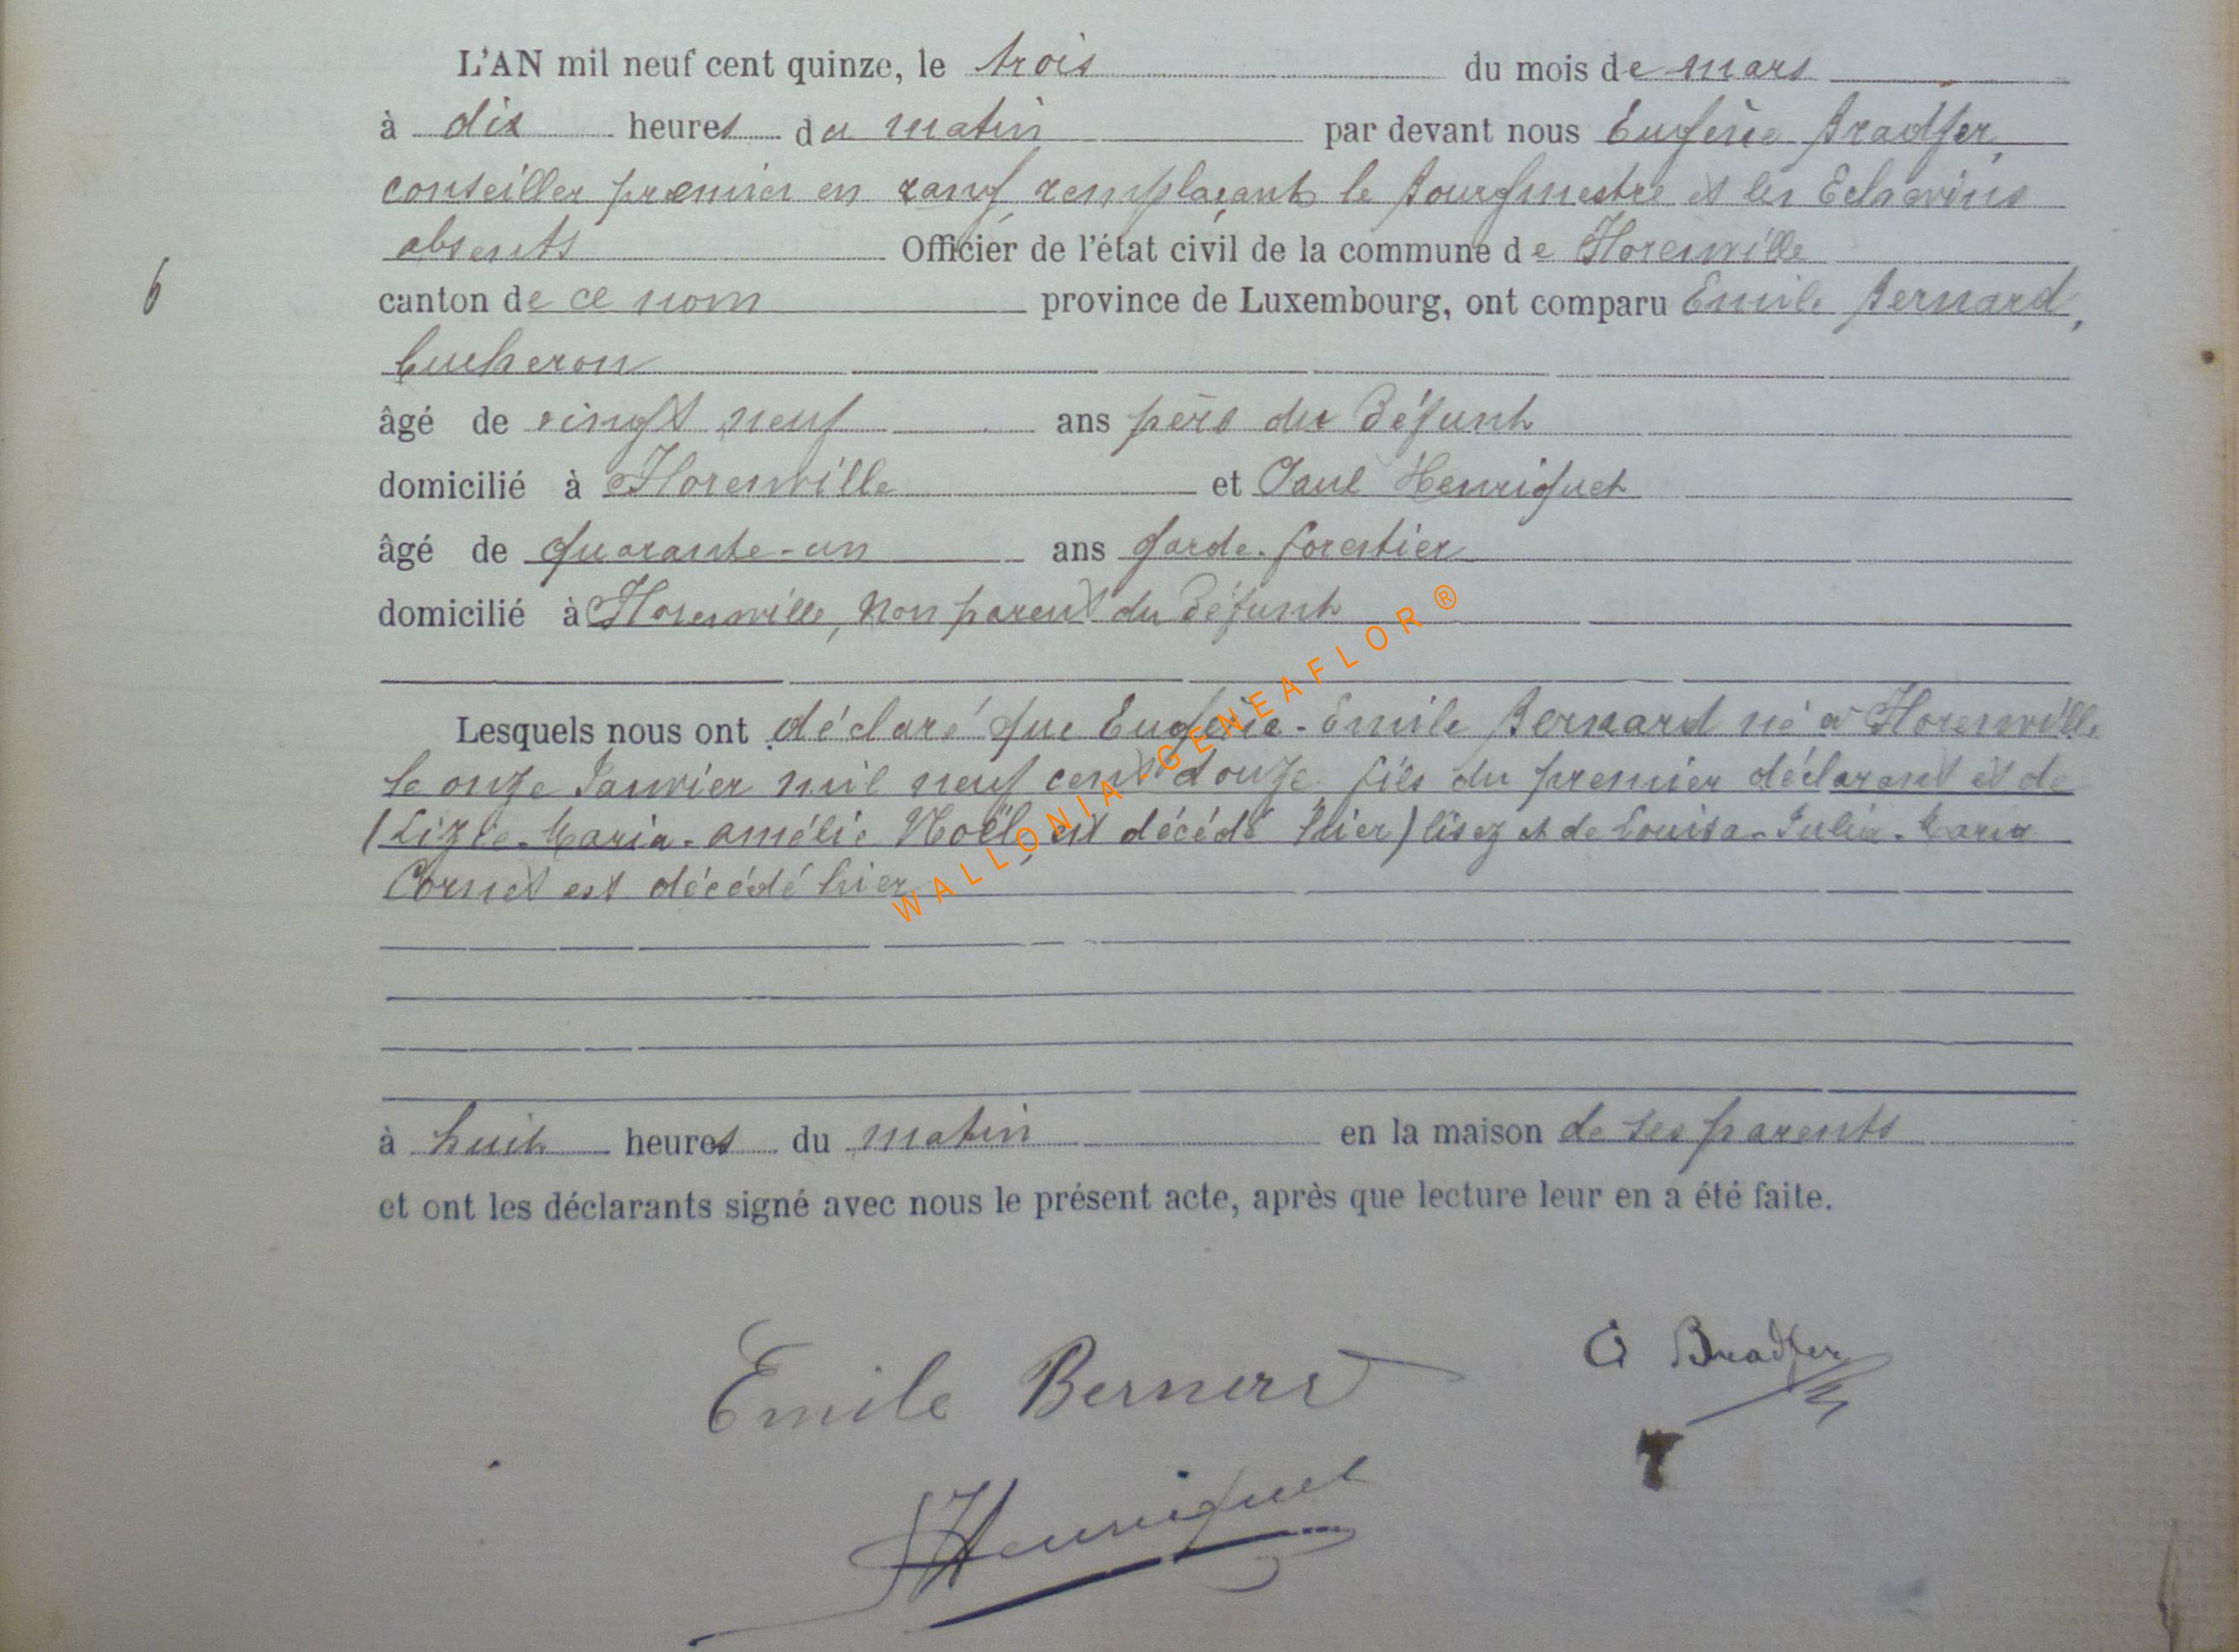 L'AN mil neuf cent quinze, le trois du mois de mars
à dix heures du matin par devant nous Eugène Bradfer,
conseiller premier en rang remplaçant le Bourgmestre et les Echevins
absents Officier de l'état civil de la commune de Florenville
6
canton de ce nom province de Luxembourg, ont comparu Emile Bernard,
bucheron
âgé de vingt neuf ans père du défunt
domicilié à Florenville et Paul Henriquet
âgé de quarante-un ans garde-forestier
domicilié à Florenville, non parent du défunt
Lesquels nous ont déclaré que Eugène-Emile Bernard né à Florenville
le onze Janvier mil neuf cent douze fils du premier déclarant et de
(Lizie-Maria-amélie Noël, est décédé hier) lisez et de Louisa-Julia-Maria
Cornet est décédé hier
WALLONIA-GENEAFLOR ®
à huit heures du matin en la maison de ses parents
et ont les déclarants signé avec nous le présent acte, après que lecture leur en a été faite.
Emile Bernard
Bradfer
Henriquet